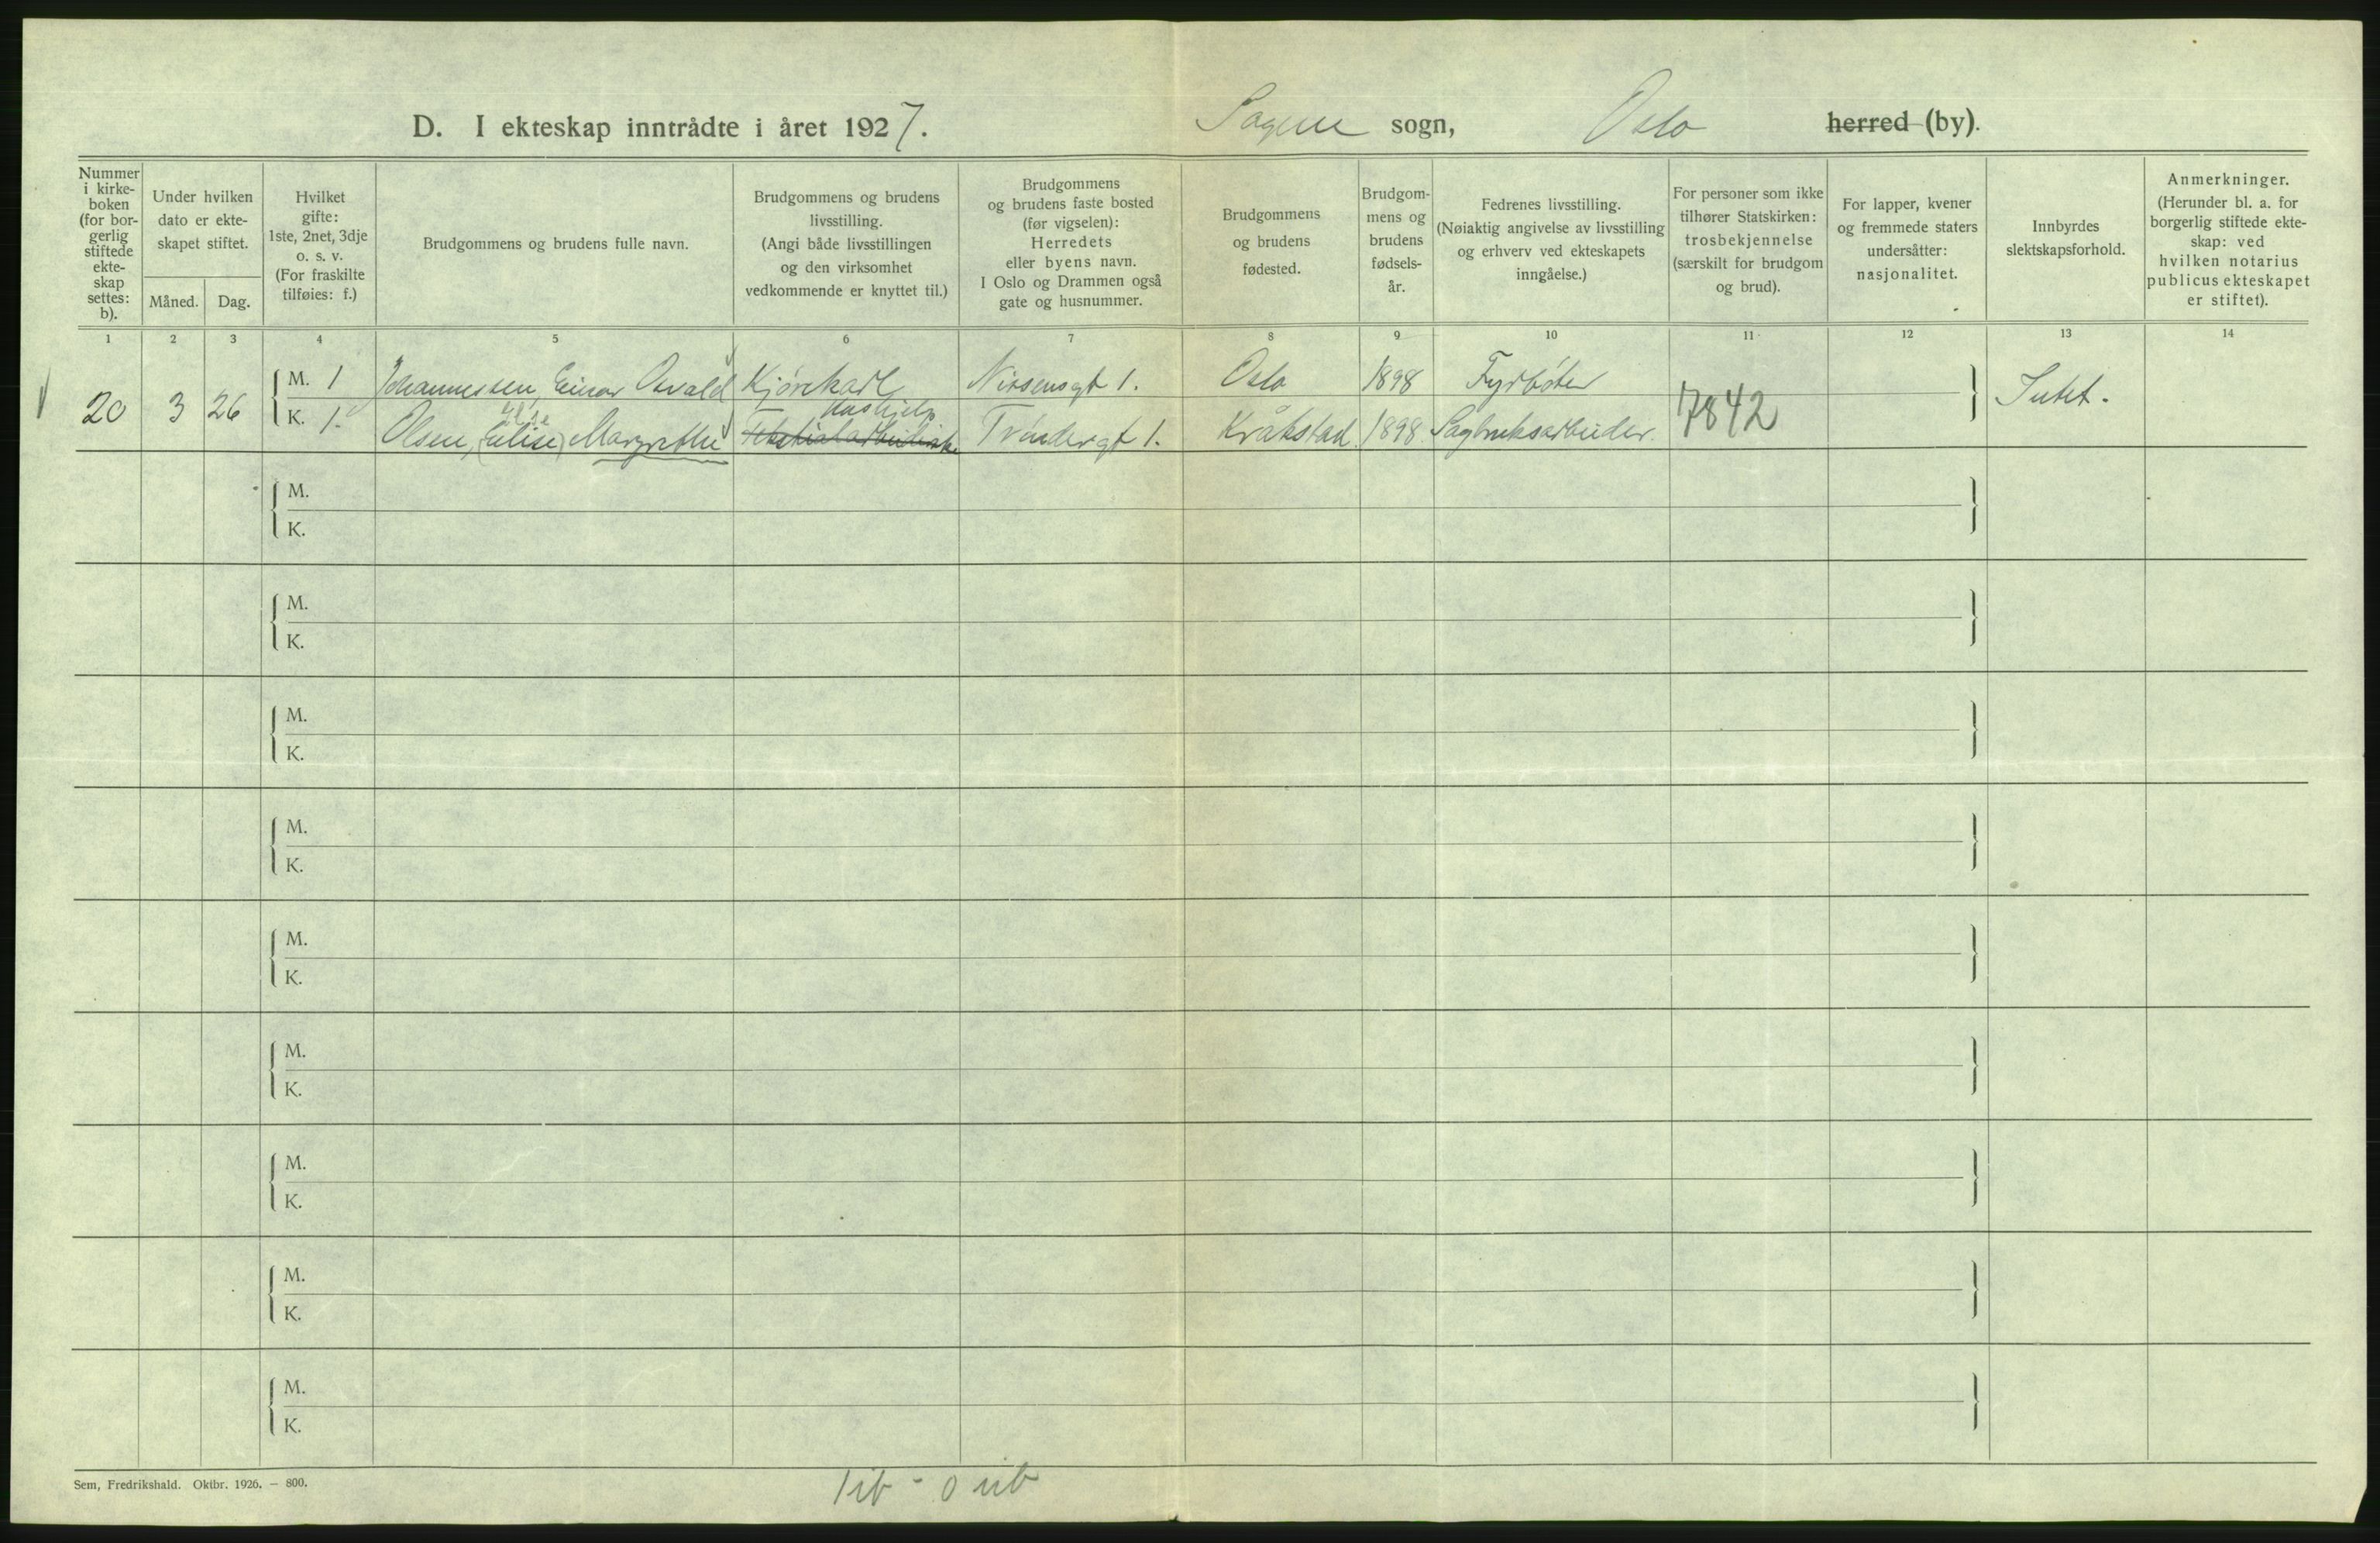 D. I ekteskap inntrådte i året 1927. Sagene sogn, Oslo herred (by).
Nummer
i kirke-
boken
(for bor-
gerlig
stiftede
ekte-
skap
settes:
b).
Under hvilken
dato er ekte-
skapet stiftet.
Måned. Dag.
Hvilket
gifte:
1ste, 2net, 3dje
o. s. v.
(For fraskilte
tilføies: f.)
Brudgommens og brudens fulle navn.
Brudgommens og brudens
livsstilling.
(Angi både livsstillingen
og den virksomhet
vedkommende er knyttet til.)
Brudgommens
og brudens faste bosted
(før vigselen):
Herredets
eller byens navn.
I Oslo og Drammen også
gate og husnummer.
Brudgommens
og brudens
fødested.
Brudgom-
mens og
brudens
fødsels-
år.
Fedrenes livsstilling.
(Nøiaktig angivelse av livsstilling
og erhverv ved ekteskapets
inngåelse.)
For personer som ikke
tilhører Statskirken:
trosbekjennelse
(særskilt for brudgom
og brud).
For lapper, kvener
og fremmede staters
undersåtter:
nasjonalitet.
Innbyrdes
slektskapsforhold.
Anmerkninger.
(Herunder bl. a. for
borgerlig stiftede ekte-
skap: ved
hvilken notarius
publicus ekteskapet
er stiftet).
1 2 3 4 5 6 7 8 9 10 11 12 13 14
M. 1 Johannessen, Einar Osvald Kjørekarl Nissensgt 1. Oslo 1898 Fyrbøter
20 3 26 7842 Intet.
Hushjelp
K. 1. Olsen, (Elise) Margrethe Trøndergt 1. Kråkstad. 1898. Sagbruksarbeider.
M.
K.
M.
K.
M.
K.
M.
K.
M.
K.
M.
K.
M.
K.
M.
K.
M.
K.
Sem, Fredrikshald. Oktbr. 1926. — 800.
1 ib - 0 uib